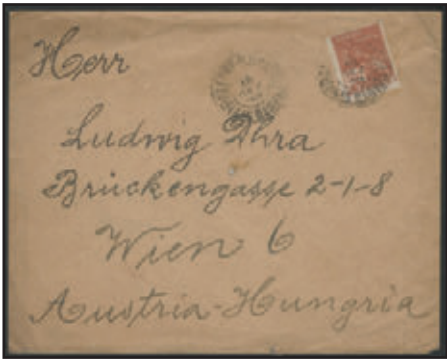 Herr
Ludwig Ahra
Brückengasse 2-1-8
Wien 6
Austria-Hungria